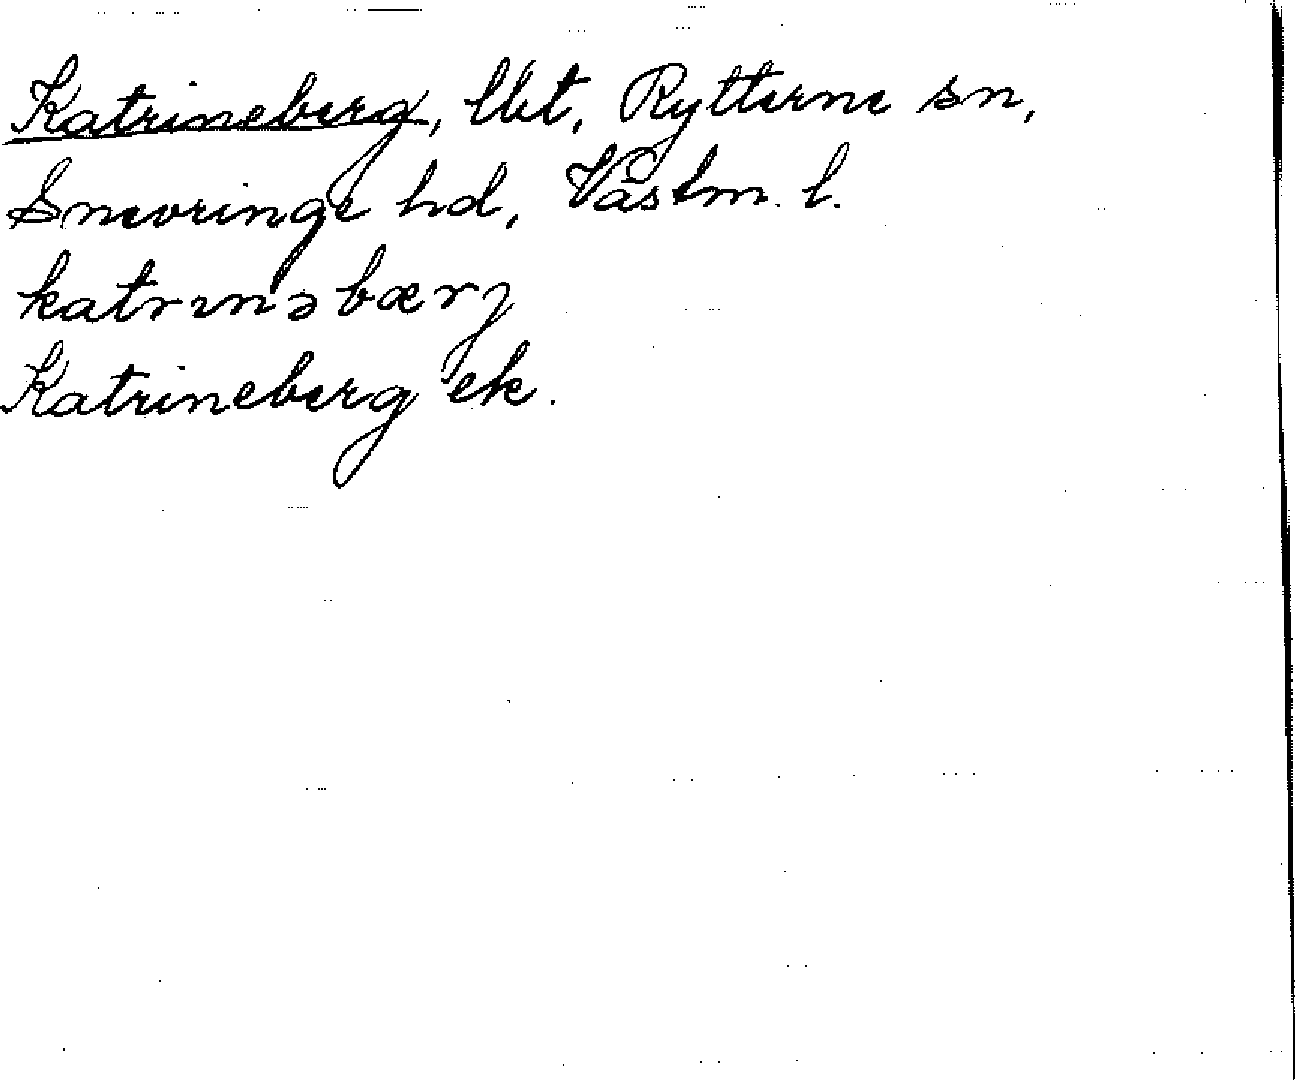 Katrineberg, lht, Rytterne sn,
Snevringe hd, Västm. l.
katrinəbærj
Katrineberg ek.